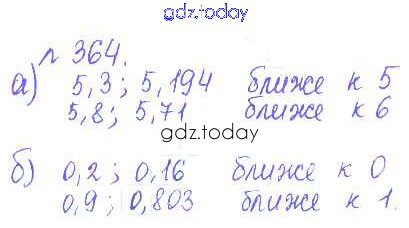 gdz.today
№ 364.
а) 5,3; 5,194 ближе к 5
5,8; 5,71 ближе к 6
gdz.today
б) 0,2; 0,16 ближе к 0
0,9; 0,803 ближе к 1.